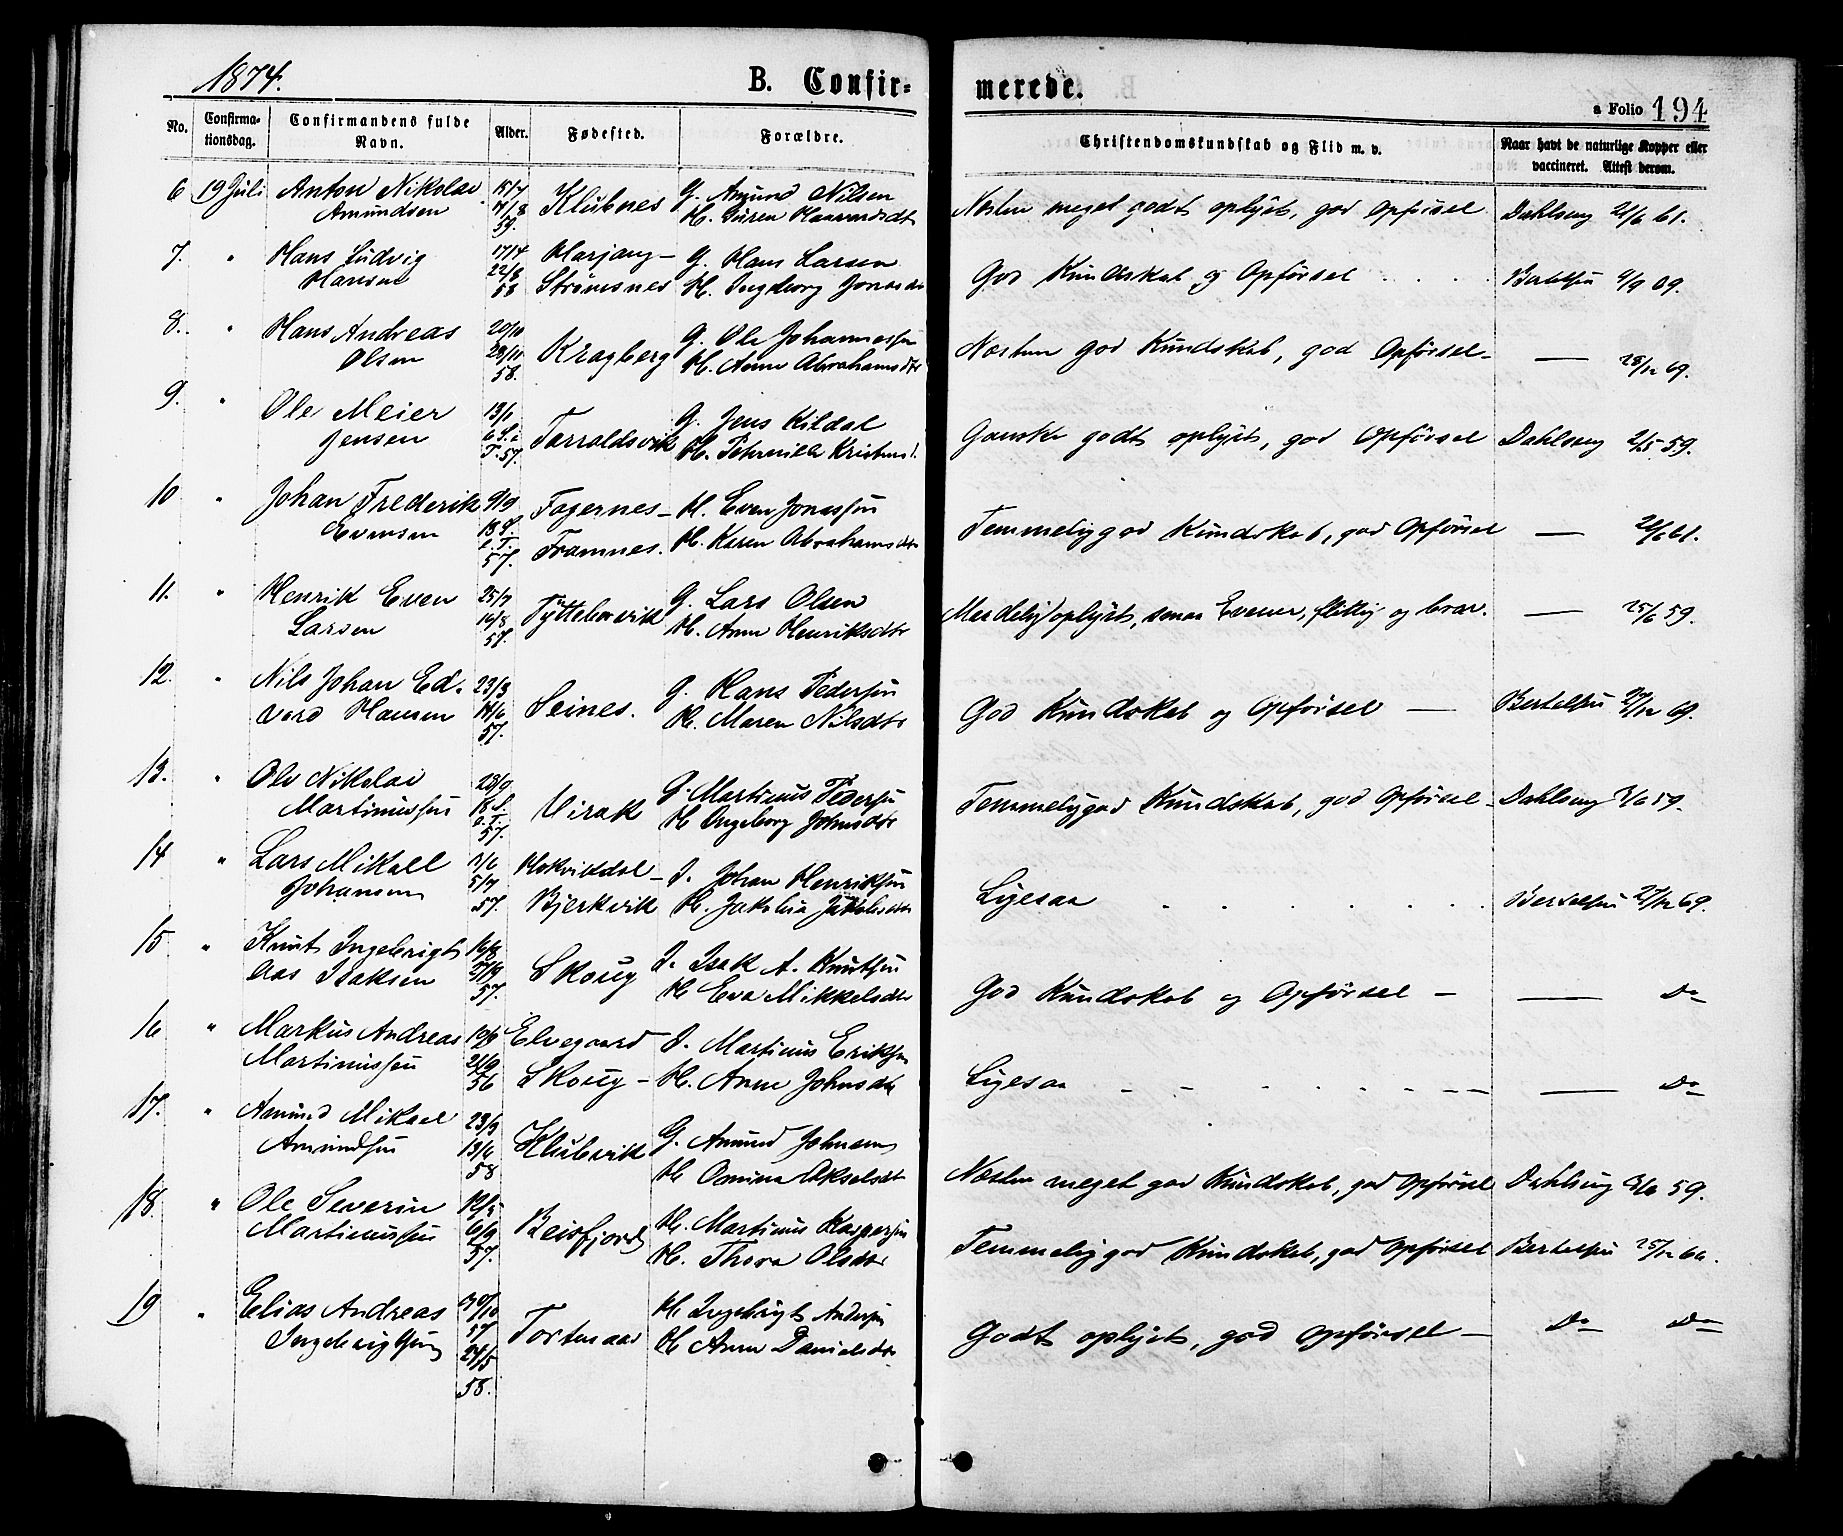 1874.
B. Confir-
merede.
a Folio 194
No.
Confirma-
tionsdag.
Confirmandens fulde
Navn.
Alder.
Fødested.
Forældre.
Christendomskundskab og Flid m. v.
Naar havt de naturlige Kopper eller
vaccineret. Attest derom.
6 19 Juli Anton Nikolai 15/7 Klubnes G. Amund Nilsen Næsten meget godt oplyst, god Opførsel Dahlseng 21/6 61.
Amundsen 17/8 H.
59.
7. " Hans Ludvig 17/4 Harjang- G. Hans Larsen God Kundskab og Opførsel Bertelsen
Hansen 22/8 Strømsnes H. Ingeborg Jonasdtr
58
8. " Hans Andreas 20/10 Kragberg G. Ole Johannessen Næsten god Kundskab, god Opførsel — 28/12 69.
Olsen 28/11 H. Anne Abrahamsdtr
58.
9. " Ole Meier 13/1 Tarraldsvik G. Jens Kildal Ganske godt oplyst, god Opførsel Dahlseng 2/5 59.
Jensen 6 S. e. H. Peternille Kristensd.
T. 57.
10 " Johan Frederik 9/9 Fagernes- H. Even Jonassen Temmelig god Kundskab, god Opførsel — 61.
Evensen 18 S. Framnes. H. Karen Abrahamsdtr
e. T.
57.
11. " Henrik Even 25/7 Tyttebærvik G. Lars Olsen oplyst, Evener, flittig og brav. — 25/6 59.
Larsen 16/8 H. Anne Henriksdtr
57.
12. " Nils Johan Ed- 23/3 Seines. G. Hans Pedersen God Kundskab og Opførsel — Bertelsen 27/12 69.
vard Hansen 14/6 H. Maren Nilsdtr
57.
13. " Ole Nikolai 28/9 Virak G. Martinus Pedersen Temmelig god Kundskab, god Opførsel Dahlseng 59.
Martinussen 18 S. H Ingeborg Johnsdtr
e. T.
57.
14 " Lars Mikall 3/6 Hokvikdal- I. Johan Henriksen Ligesaa Bertelsen 27/12 69.
Johansen 5/7 Bjerkvik H. Jakobia Jakobsdtr
57.
15 " Knut Ingebrigt 16/8 Skoug I. Isak A. Knutsen God Kundskab og Opførsel — — Do
Aas Isaksen 27/9 H Eva Mikkelsdtr
57.
16 " Markus Andreas 10/9 Elvegaard I. Martinus Eriksen Ligesaa — Do
Martinussen 21/9 Skoug- H. Anne Johnsdtr
56
17. " Amund Mikael 23/3 Klubvik G. Amund Johnsen Næsten meget god Kundskab, god Opførsel Dahlseng 59.
Amundsen 13/6 H
58
18. " Ole Severin 12/5 Beisfjord H. Martinus Kaspersen Temmelig god Kundskab, god Opførsel Bertelsen 25/12 66.
Martinussen 6/9 H. Thora Olsdtr
57.
19 " Elias Andreas 30/10 H Ingebrigt Andersen Godt oplyst, god Opførsel — Do Do
Ingebrigtsen 57 H Anne Danielsdtr
24/5
58.